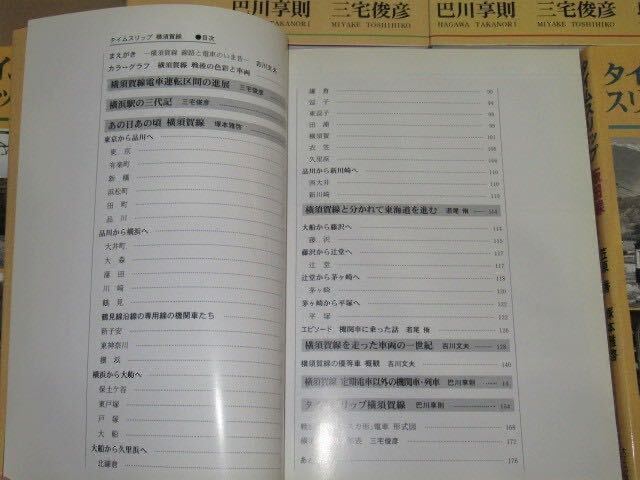 巴川享則 三宅俊彦
TAKANORI MIYAKE TOSHIHIKO
タイムスリップ 横須賀線 ●目次
まえがき ―横須賀線 線路と電車のいま昔― 吉川文夫
カラーグラフ 横須賀線 戦後の色彩と車両
横須賀線電車運転区間の進展 三宅俊彦
横浜駅の三代記 三宅俊彦
あの日あの頃 横須賀線 塚本雅啓
東京から品川へ
東 京
有楽町
新 橋
浜松町
田 町
品 川
品川から横浜へ
大井町
大 森
蒲 田
川 崎
鶴 見
鶴見線沿線の専用線の機関車たち
新子安
東神奈川
横 浜
横浜から大船へ
保土ケ谷
東戸塚
戸 塚
大 船
大船から久里浜へ
北鎌倉
鎌 倉 90
逗 子
東逗子
田 浦
横須賀
衣 笠
久里浜
品川から新川崎へ 110
西大井 110
新川崎
横須賀線と分かれて東海道を進む 若尾 侑 114
大船から藤沢へ 115
藤 沢 115
藤沢から辻堂へ
辻 堂
辻堂から茅ヶ崎へ 118
茅ヶ崎
茅ヶ崎から平塚へ 122
平 塚 122
エピソード 機関車に乗った話 若尾 侑 126
横須賀線を走った車両の一世紀 吉川文夫 128
横須賀線の優等車 概観 吉川文夫 140
横須賀線 定期電車以外の機関車・列車 巴川享則
タイムスリップ横須賀線 巴川享則 154
電車 形式図 168
三宅俊彦 172
176